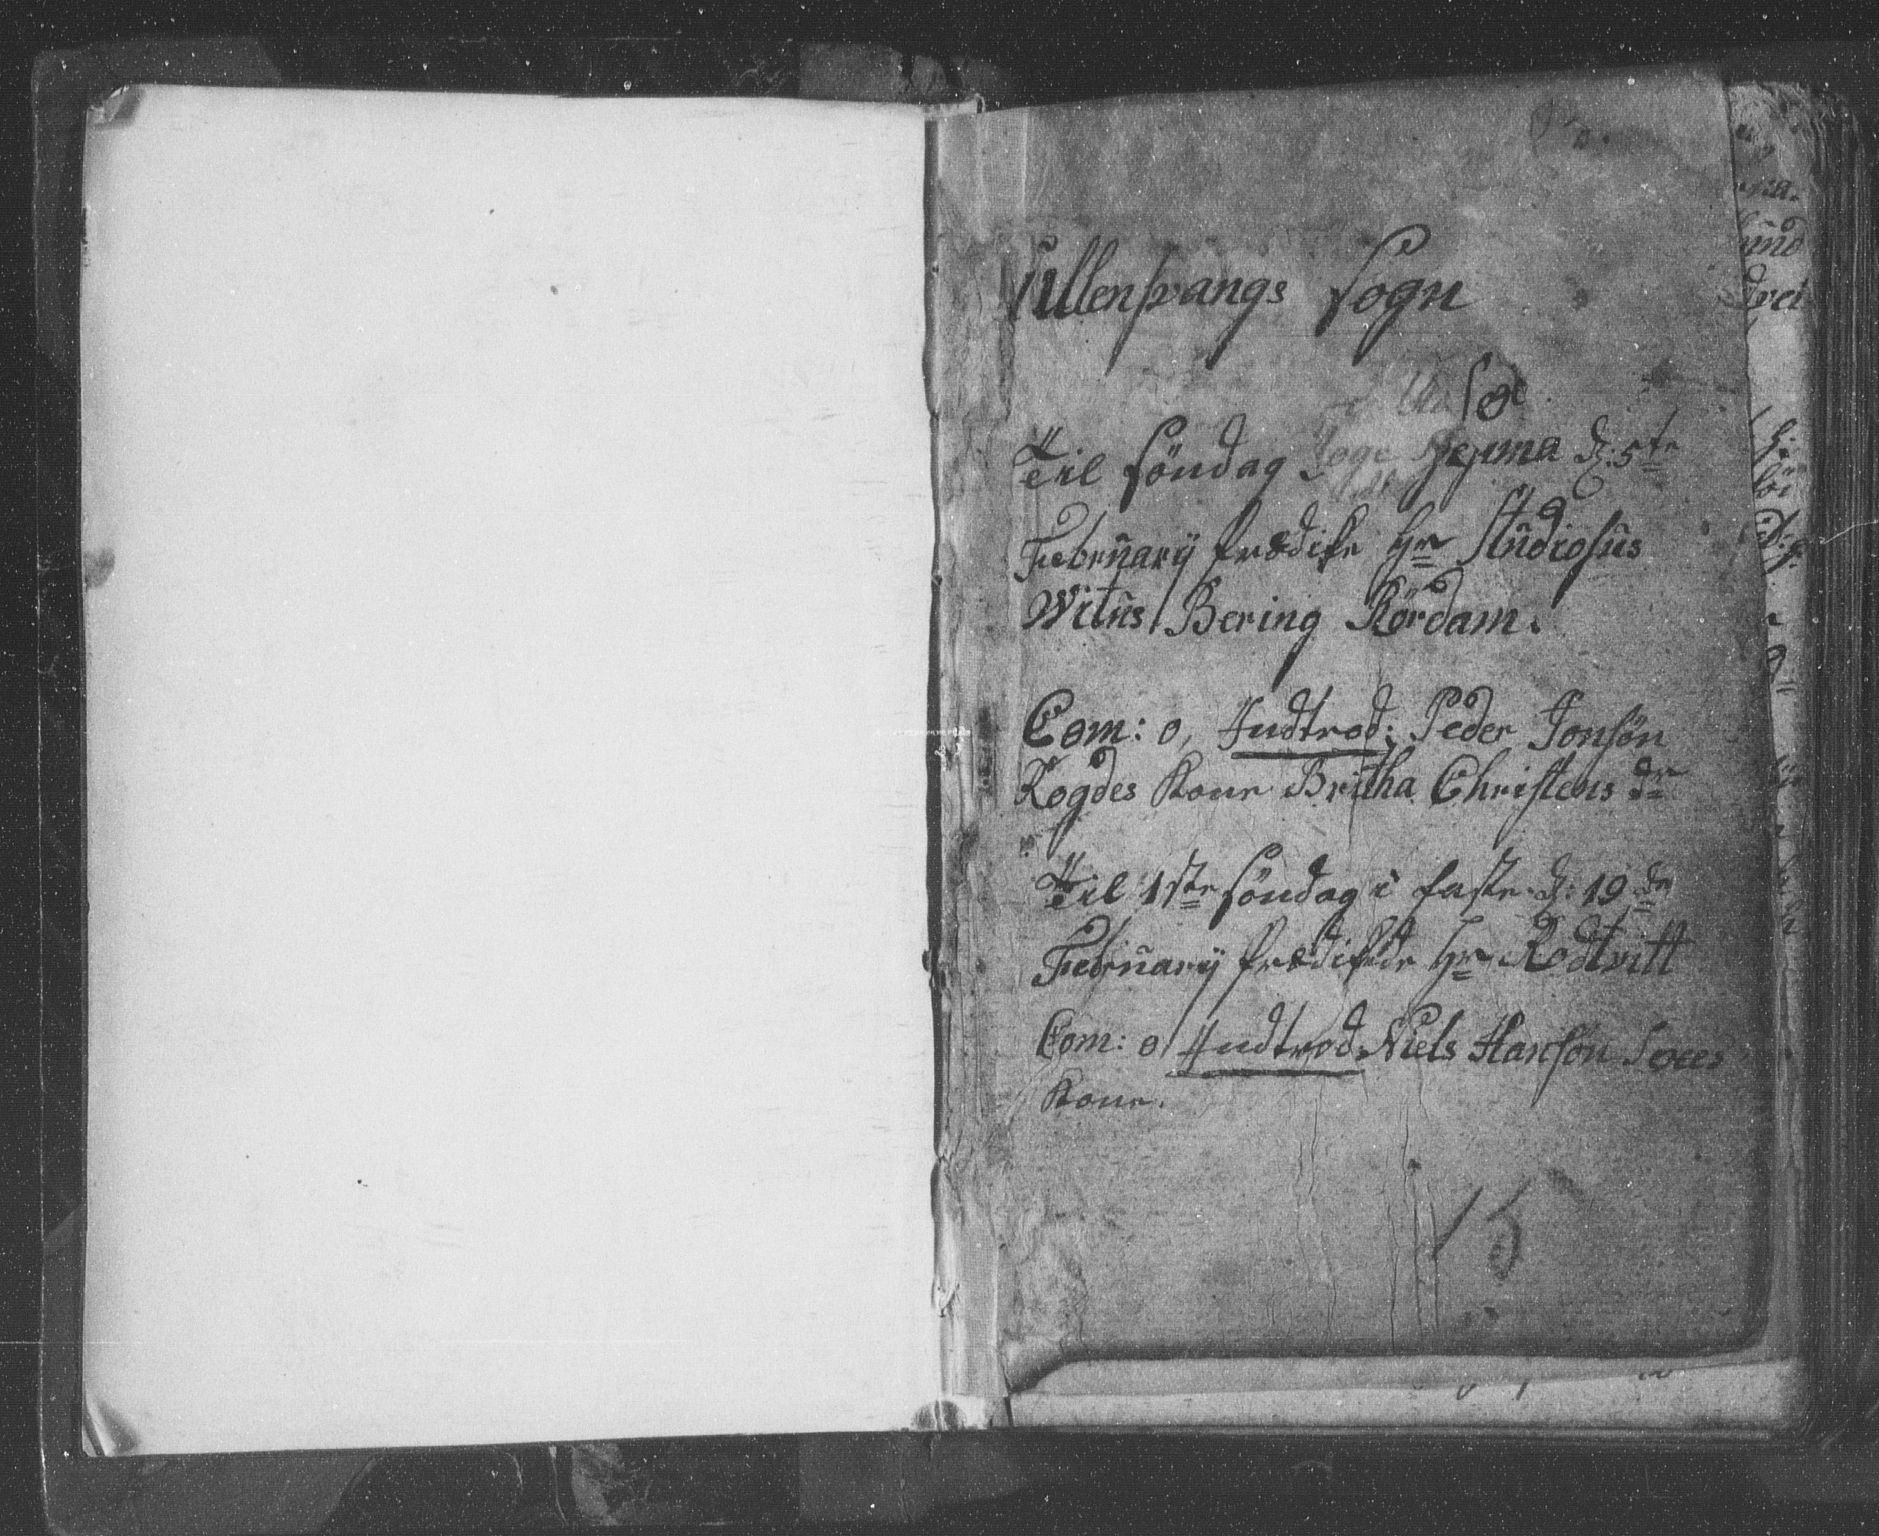 Ullensvangs Sogn
Til Söndag Sexma d: 5te
Februarij prædike Hr Studiosus
Witus Bering Rördam.
Com: 0, Indtrod: Peder Jonsön
Kogdes Kone Britha Christens dr
Til 1ste Söndag i faste d: 19de
Februarij prædikede Hr Rodtvitt
Com: 0 Indtrod: Niels Hansön
Kone.
15